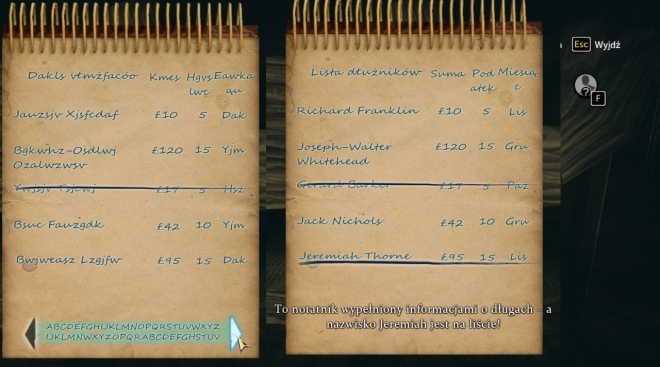 Dakls vtmżfacóo Kmes Hgvs Eawka
lwc qu
Jauzsjv Xjsfcdaf £10 5 Dak
Bgkwhz-Osdlwj £120 15 Yjm
Ozalwzwsv
£17 5 Hsz
Bsuc Fauzgdk £42 10 Yjm
Bwjweasz Lzgjfw £95 15 Dak
ABCDEFGHIJKLMNOPQRSTUVWXYZ
Lista dłużników Suma Pod Miesią
atek c
Richard Franklin £10 5 Lis
Joseph-Walter £120 15 Gru
Whitehead
Gerard Barker £17 5 Paź
Jack Nichols £42 10 Gru
Jeremiah Thorne £95 15 Lis
To notatnik wypełniony informacjami o długach - a
nazwisko Jeremiah jest na liście!
Esc Wyjdź
F